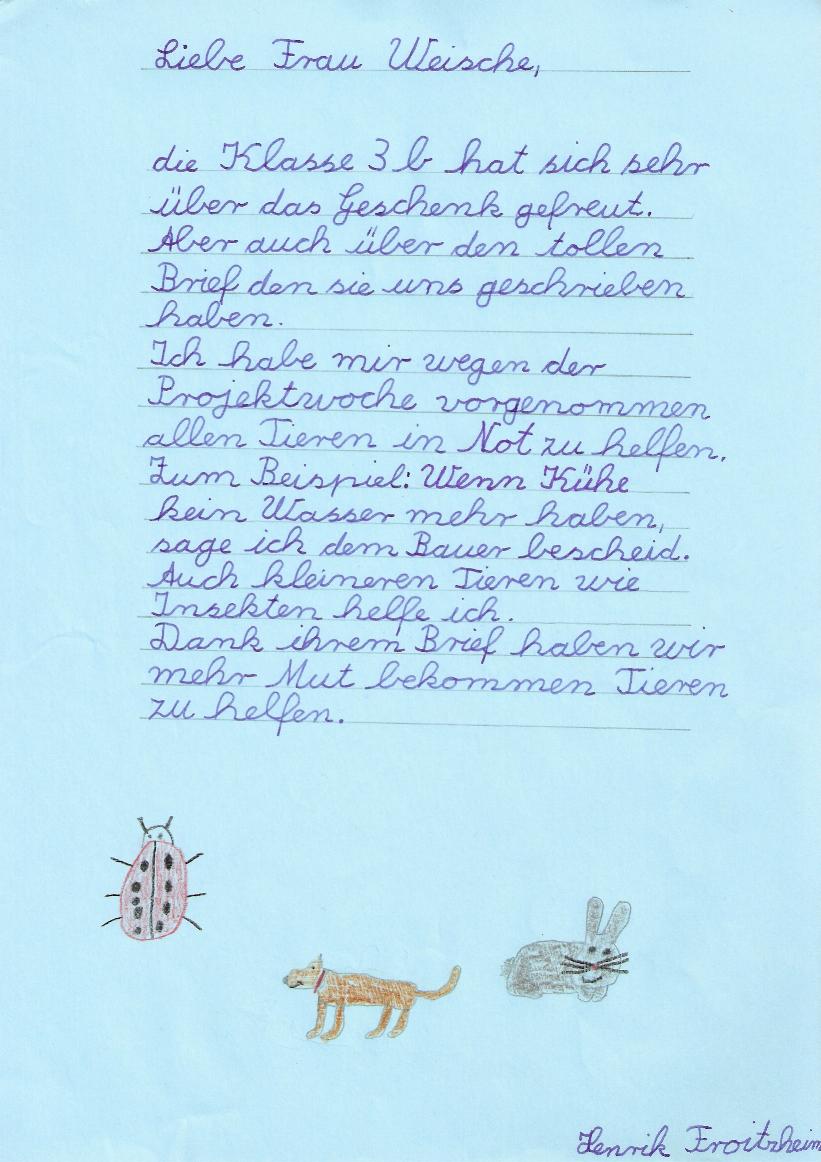 Liebe Frau Weische,
die Klasse 3b hat sich sehr
über das Geschenk gefreut.
Aber auch über den tollen
Brief den sie uns geschrieben
haben.
Ich habe mir wegen der
Projektwoche vorgenommen
allen Tieren in Not zu helfen.
Zum Beispiel: Wenn Kühe
kein Wasser mehr haben,
sage ich dem Bauer bescheid.
Auch kleineren Tieren wie
Insekten helfe ich.
Dank ihrem Brief haben wir
mehr Mut bekommen Tieren
zu helfen.
Henrik Froitzheim